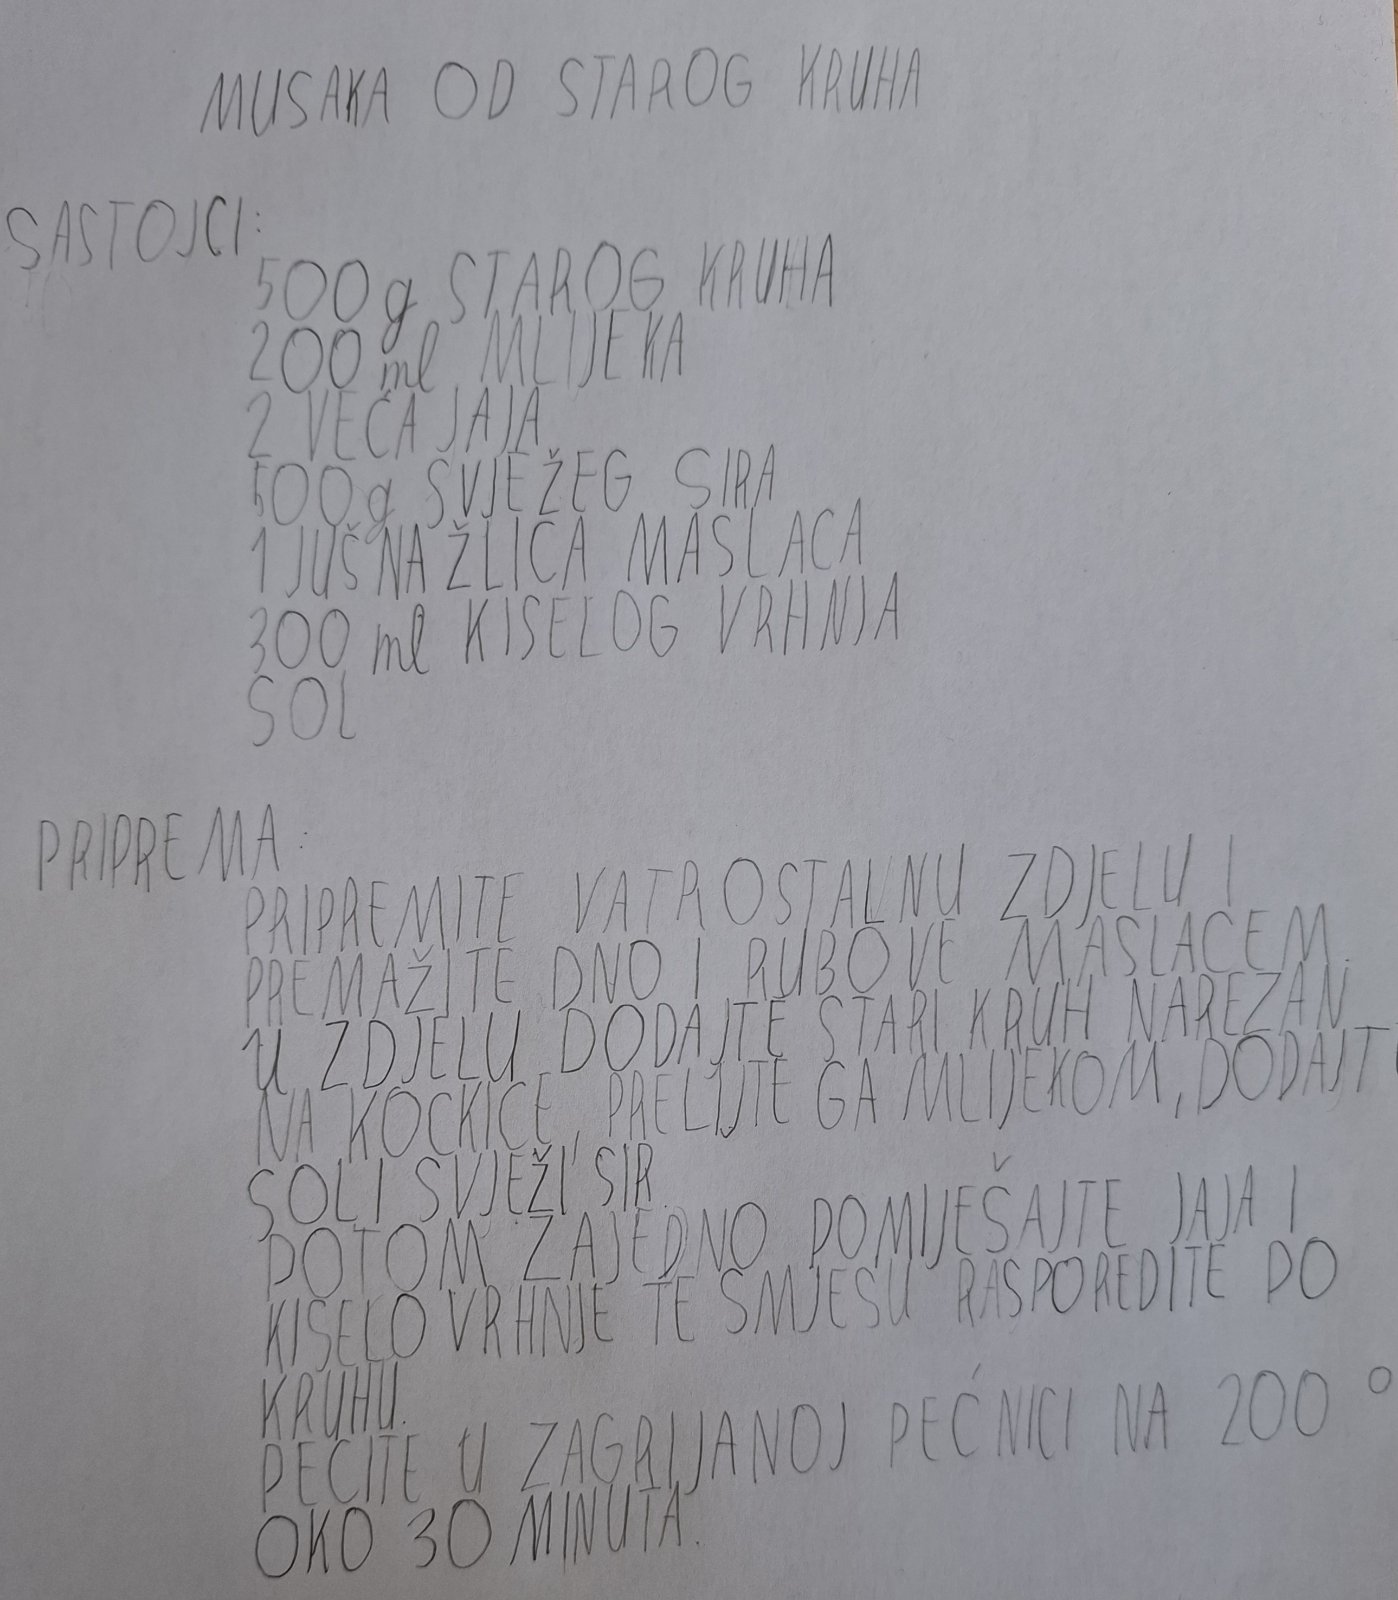 MUSAKA OD STAROG KRUHA
SASTOJCI:
500 g STAROG KRUHA
200 ml MLIJEKA
2 VEĆA JAJA
500 g SVJEŽEG SIRA
1 JUŠNA ŽLICA MASLACA
300 ml KISELOG VRHNJA
SOL
PRIPREMA:
PRIPREMITE VATROSTALNU ZDJELU I
PREMAŽITE DNO I RUBOVE MASLACEM.
U ZDJELU DODAJTE STARI KRUH NAREZAN
NA KOCKICE, PRELIJTE GA MLIJEKOM, DODAJTE
SOL I SVJEŽI SIR.
POTOM ZAJEDNO POMIJEŠAJTE JAJA I
KISELO VRHNJE TE SMJESU RASPOREDITE PO
KRUHU.
PECITE U ZAGRIJANOJ PEĆNICI NA 200°
OKO 30 MINUTA.